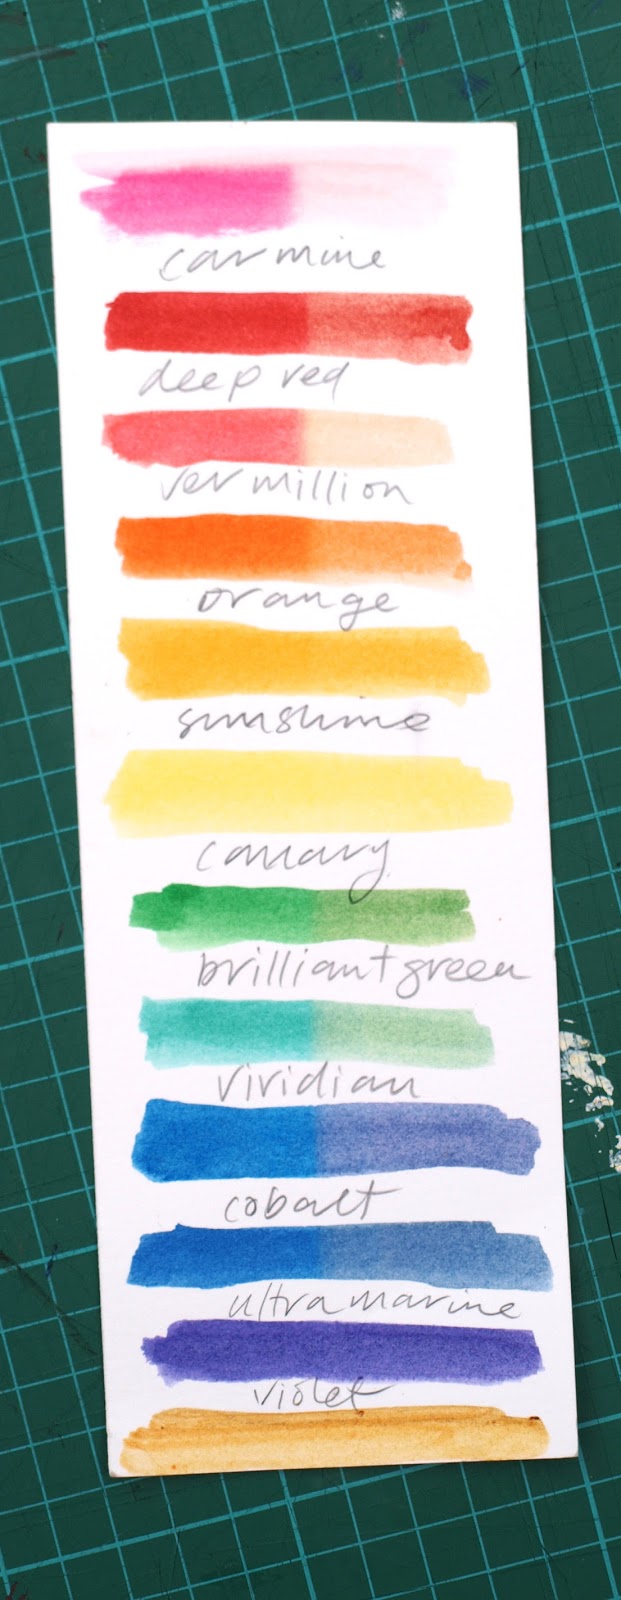 carmine
deep red
vermillion
orange
sunshine
canary
brilliant green
viridian
cobalt
ultramarine
violet